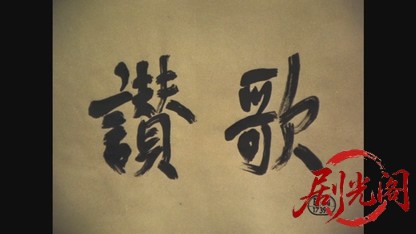 讃歌
剧光阁